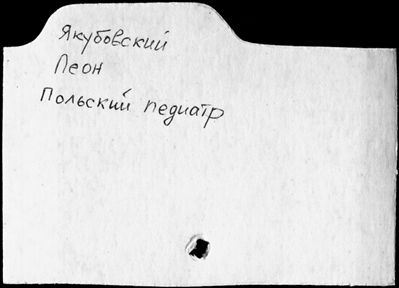 Якубовский
Леон
Польский педиатр